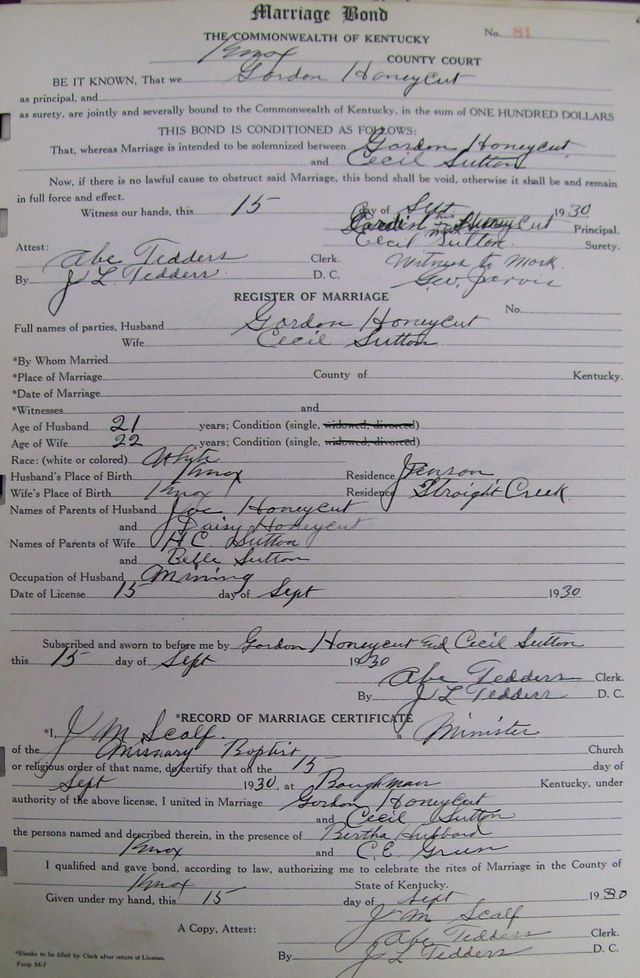 Marriage Bond
THE COMMONWEALTH OF KENTUCKY No. 81
Knox COUNTY COURT
BE IT KNOWN, That we Gordon Honeycut
as principal, and
as surety, are jointly and severally bound to the Commonwealth of Kentucky, in the sum of ONE HUNDRED DOLLARS
THIS BOND IS CONDITIONED AS FOLLOWS:
That, whereas Marriage is intended to be solemnized between Gordon Honeycut
and Cecil Sutton
Now, if there is no lawful cause to obstruct said Marriage, this bond shall be void, otherwise it shall be and remain
in full force and effect.
Witness our hands, this 15 day of Sept 1930
Honeycut Principal.
Cecil Sutton Surety.
Attest:
Abe Tedders Clerk. Witness to Mark.
By J L Tedders D. C. Geo. Jarvis
REGISTER OF MARRIAGE
No.
Full names of parties, Husband Gordon Honeycut
Wife Cecil Sutton
*By Whom Married
*Place of Marriage County of Kentucky.
*Date of Marriage
*Witnesses and
Age of Husband 21 years; Condition (single, widowed, divorced)
Age of Wife 22 years; Condition (single, widowed, divorced)
Race: (white or colored) White
Husband's Place of Birth Knox Residence Jenson
Wife's Place of Birth Knox Residence Straight Creek
Names of Parents of Husband Joe Honeycut
and Daisy Honeycut
Names of Parents of Wife H.C. Sutton
and Belle Sutton
Occupation of Husband Mining
Date of License 15 day of Sept 1930
Subscribed and sworn to before me by Gordon Honeycut End Cecil Sutton
this 15 day of Sept 1930
Abe Tedders Clerk.
By J L Tedders D. C.
*RECORD OF MARRIAGE CERTIFICATE
*I, J M Scalf a Minister
of the Missnary Boptist Church
or religious order of that name, do certify that on the 15 day of
Sept 1930, at Baughman Kentucky, under
authority of the above license, I united in Marriage Gordon Honeycut
and Cecil Sutton
the persons named and described therein, in the presence of Bertha Hubbard
Knox and C.E. Green
I qualified and gave bond, according to law, authorizing me to celebrate the rites of Marriage in the County of
Knox State of Kentucky.
Given under my hand, this 15 day of Sept 1930
J M Scalf
A Copy, Attest: Abe Tedders Clerk.
By J L Tedders D. C.
*Blanks to be filled by Clerk after return of License.
Form M-7